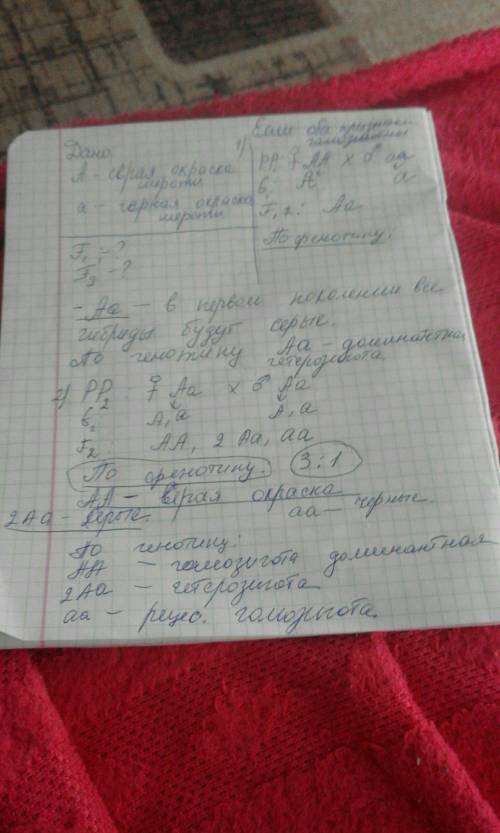 Дано:
А - серая окраска
шерсти
а - черная окраска
шерсти
F₁ - ?
F₃ - ?
1) Если оба признака
гомозиготны
РР: ♀ АА х ♂ аа
G: А а
F₁: Аа
По фенотипу:
- Аа - в первом поколении все
гибриды будут серые.
По генотипу Аа - доминантная
гетерозигота.
2) РР₂: ♀ Аа х ♂ Аа
G₂: А, а А, а
F₂: АА, 2 Аа, аа
По фенотипу. 3:1
АА - серая окраска
2Аа - серые. аа - черные.
По генотипу:
АА - гомозигота доминантная
2Аа - гетерозигота
аа - рецес. гомозигота.